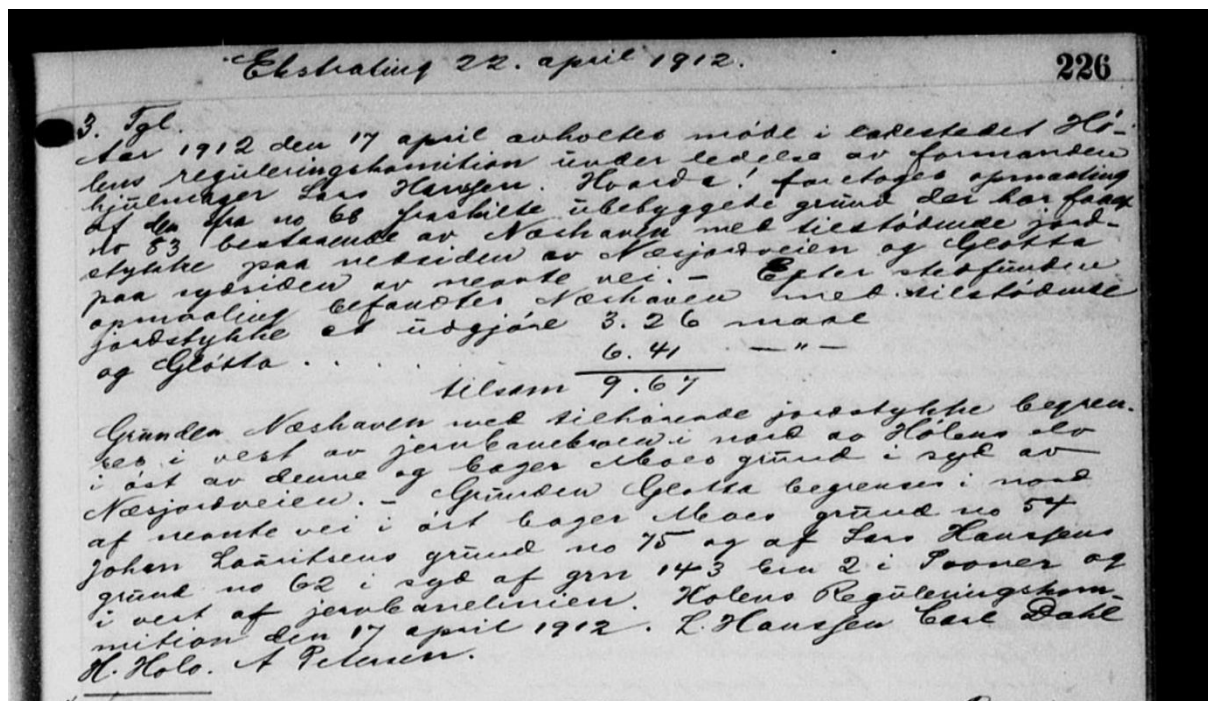 Ekstrating 22. april 1912.
226
3. Tgl.
Aar 1912 den 17 april avholtes møde i ladestedet Hø-
lens reguleringskomition under ledelse av formanden
hjulmager Lars Hanssen. Hvorda! foretoges opmaaling
af den fra no 68 fraskilte ubebyggede grund der har faaet
no 83 bestaaende av Næshaven med tilstødende jord-
stykke paa nedsiden av Næsjordveien og Gløtta
paa sydsiden av nevnte vei. – Efter stedfunden
opmaaling befandtes Næshaven med tilstødende
jordstykke at udgjøre 3.26 maal
og Gløtta . . . . 6.41 —"—
tilsam 9.67
Grunden Næshaven med tilhørende jordstykke begren-
ses i vest av jernbanebroen i nord av Hølens elv
i øst av denne og bager Moes grund i syd av
Næsjordveien. – Grunden Gløtta begrenses i nord
af nevnte vei i øst bager Moes grund no 54
Johan Lauritsens grund no 75 og af Lars Hanssens
grund no 62 i syd af grn 143 brn 2 i Sooner og
i vest af jernbanelinien. Holens Reguleringskom-
mition den 17 april 1912. L. Hanssen Carl Dahl
H. Holo. A Petersen.